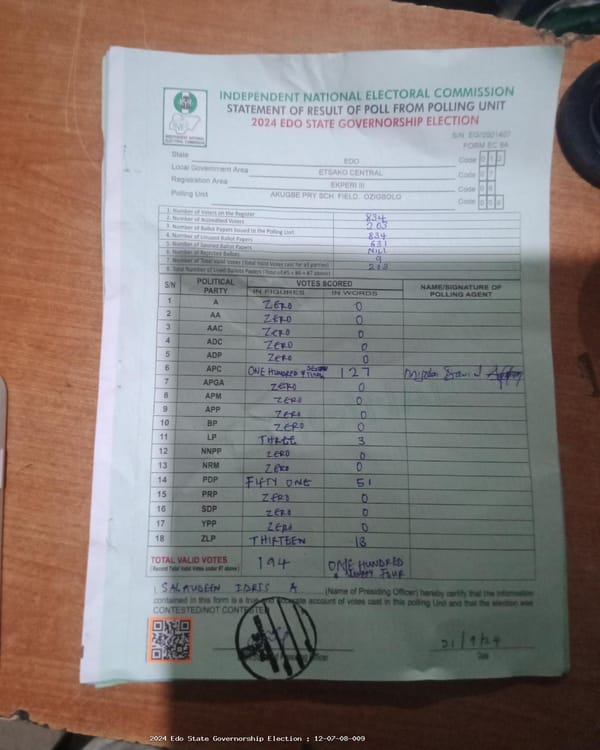 INDEPENDENT NATIONAL ELECTORAL COMMISSION
STATEMENT OF RESULT OF POLL FROM POLLING UNIT
2024 EDO STATE GOVERNORSHIP ELECTION
FORM EC 8A
State EDO Code 0 1 2
Local Government Area ETSAKO CENTRAL Code 0 7
Registration Area EKPERI III Code 0 8
Polling Unit AKUGBE PRY SCH. FIELD, OZIGBOLO Code 0 0 9
1. Number of Voters on the Register 834
2. Number of Accredited Voters 203
3. Number of Ballot Papers Issued to the Polling Unit 834
4. Number of Unused Ballot Papers 631
5. Number of Spoiled Ballot Papers NILL
6. Number of Rejected Ballots 9
7. Number of Total Valid Votes (Total Valid Votes cast for all parties)
8. Total Number of Used Ballots Papers (Total of #5 + #6 + #7 above) 203
S/N POLITICAL PARTY VOTES SCORED NAME/SIGNATURE OF POLLING AGENT
IN FIGURES IN WORDS
1 A ZERO 0
2 AA ZERO 0
3 AAC ZERO 0
4 ADC ZERO 0
5 ADP ZERO 0
6 APC ONE HUNDRED & 127
7 APGA ZERO 0
8 APM ZERO 0
9 APP ZERO 0
10 BP ZERO 0
11 LP THREE 3
12 NNPP ZERO 0
13 NRM ZERO 0
14 PDP FIFTY ONE 51
15 PRP ZERO 0
16 SDP ZERO 0
17 YPP ZERO 0
18 ZLP THIRTEEN 13
TOTAL VALID VOTES 194 ONE HUNDRED & NINETY FOUR
(Record Total Valid Votes under #7 above)
I SALAUDEEN IDRIS A (Name of Presiding Officer) hereby certify that the information
contained in this form is a true and accurate account of votes cast in this polling Unit and that the election was
CONTESTED/NOT CONTESTED
21/9/24
Date
2024 Edo State Governorship Election : 12-07-08-009